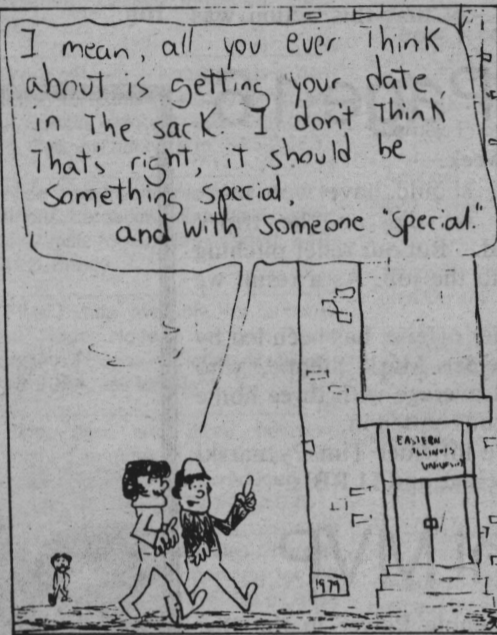 I mean, all you ever Think
about is getting your date
in The sack. I don't Think
Thats right, it should be
something special,
and with someone "special."
EASTERN
ILLINOIS
UNIVERSITY
1979